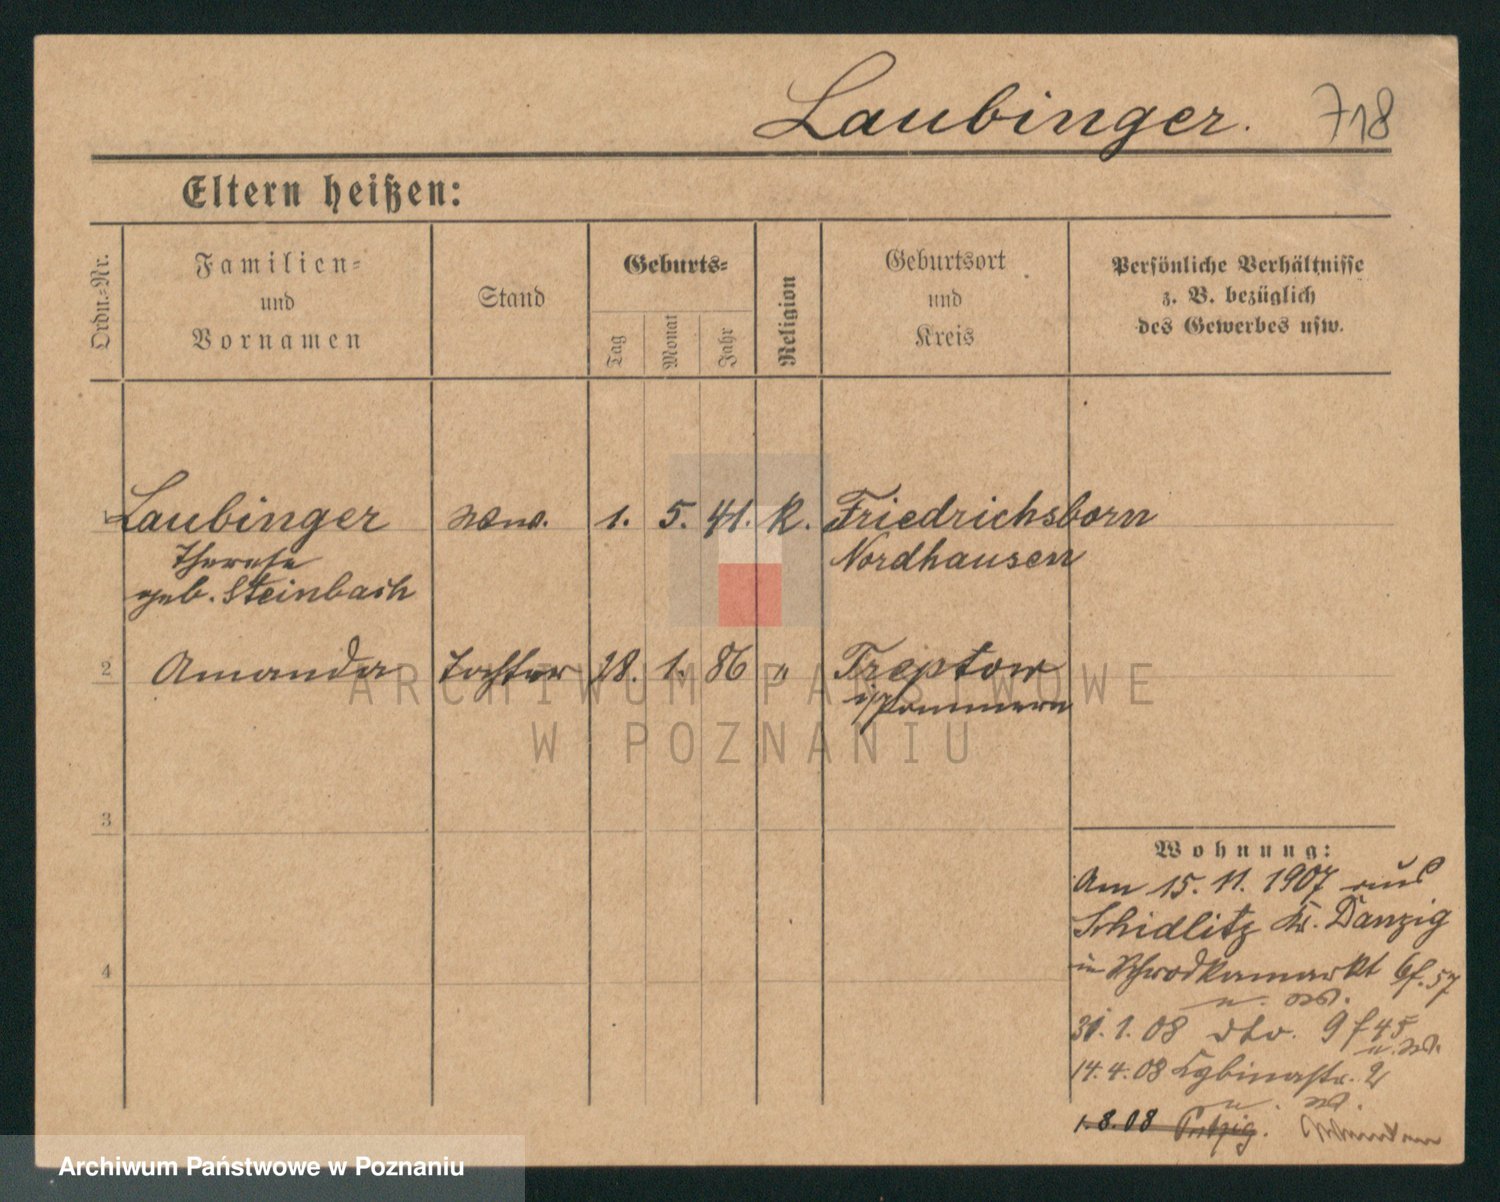 Laubinger. 718
Eltern heißen:
Ordn.-Nr.
Familien-
und
Vornamen
Stand
Geburts-
Tag
Monat
Jahr
Religion
Geburtsort
und
Kreis
Persönliche Verhältnisse
z. B. bezüglich
des Gewerbes usw.
Laubinger Wwe. 1. 5. 41. K. Friedrichsborn
Therese Nordhausen
geb. Steinbach
2 Amanda Tochter 28. 1. 86 " Treptow
i/Pommern
3
4
Wohnung:
Am 15. 11. 1907 aus
Schidlitz Kr. Danzig
in Schrodkamarkt 6 f. 57
31. 1. 08 dto. 9 f 45
14. 4. 08 2
1. 8. 08
ARCHIWUM PAŃSTWOWE
W POZNANIU
Archiwum Państwowe w Poznaniu